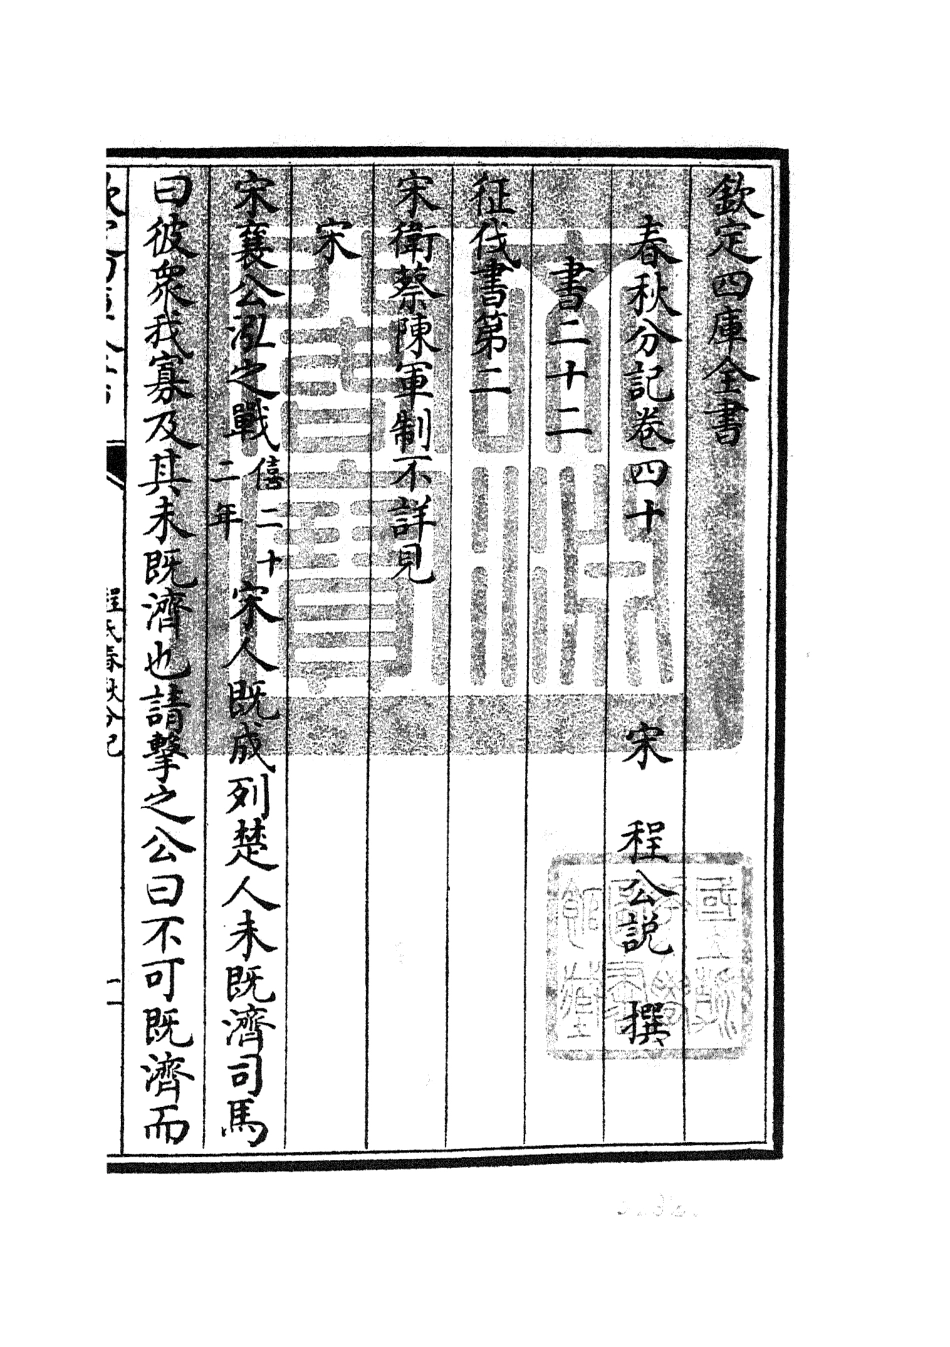 欽定四庫全書
春秋分記卷四十　宋　程公説　撰
書二十二
征伐書第二
宋衛蔡陳軍制不詳見
宋
宋襄公泓之戰僖二十二年宋人既成列楚人未既濟司馬
曰彼衆我寡及其未既濟也請擊之公曰不可既濟而
程氏春秋分記